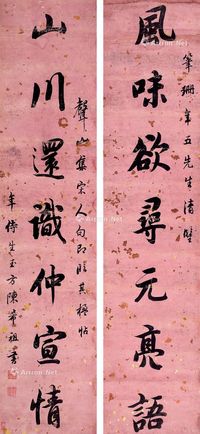 風味欲尋元亮語
筆珊年五先生清鑒
山川還識仲宣情
聲山集宋人句即臨其秘帖
年侍生玉方陳希祖書
Artron.Net
Artron.Net